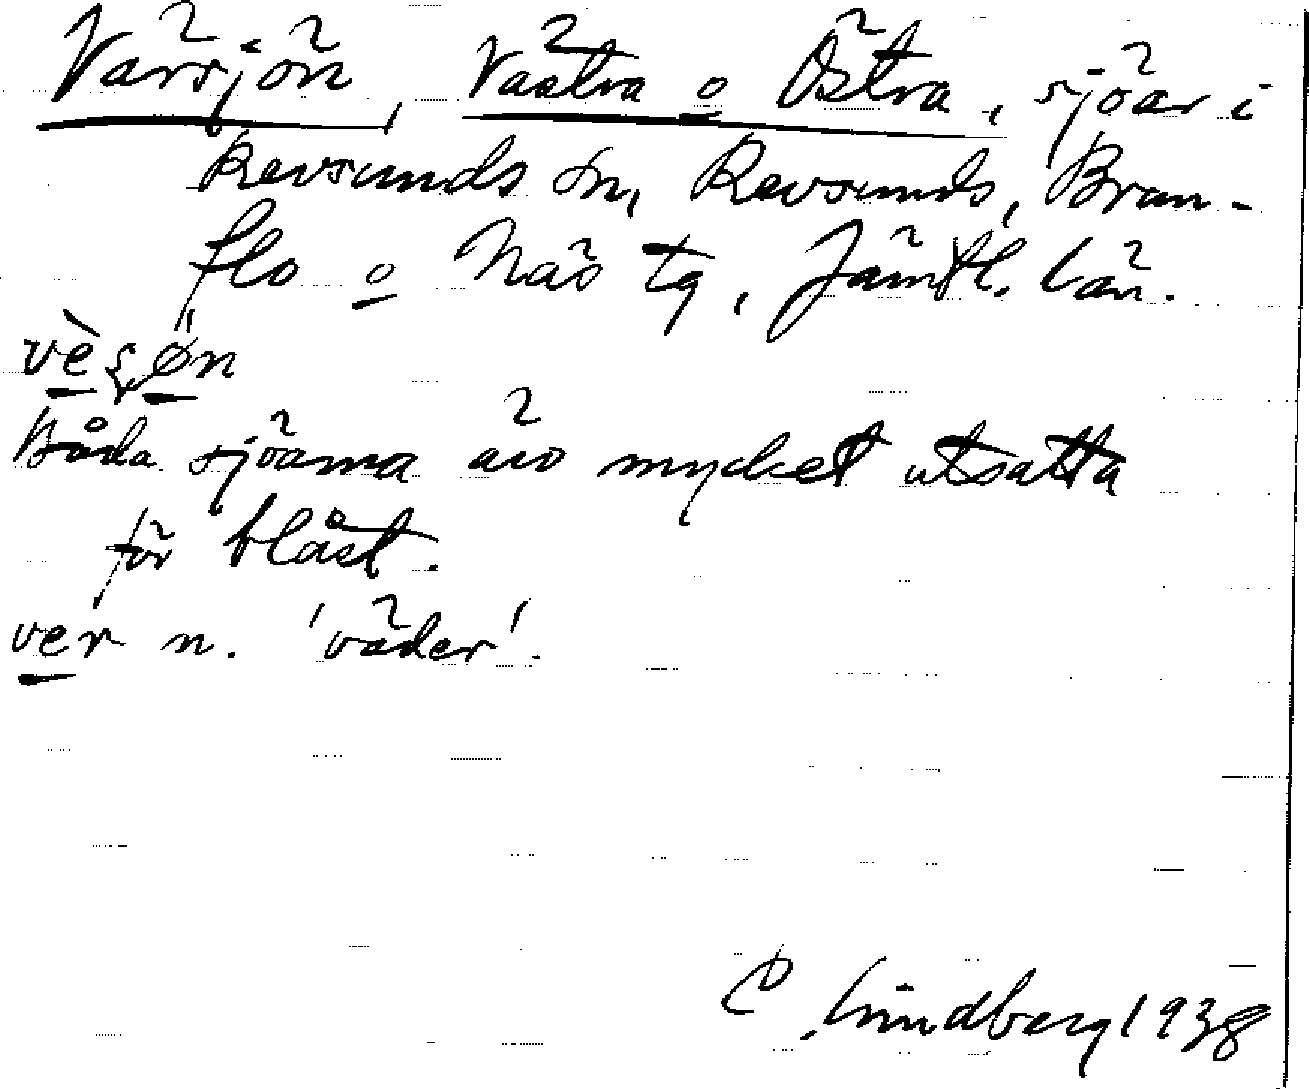 Värsjön, Västra o Östra, sjöar i
Revsunds sn, Revsunds, Brun-
flo o Näs tg, Jämtl. län.
vèʂøn
Båda sjöarna äro mycket utsatta
för blåst.
ver n. 'väder'.
C Lindberg 1938